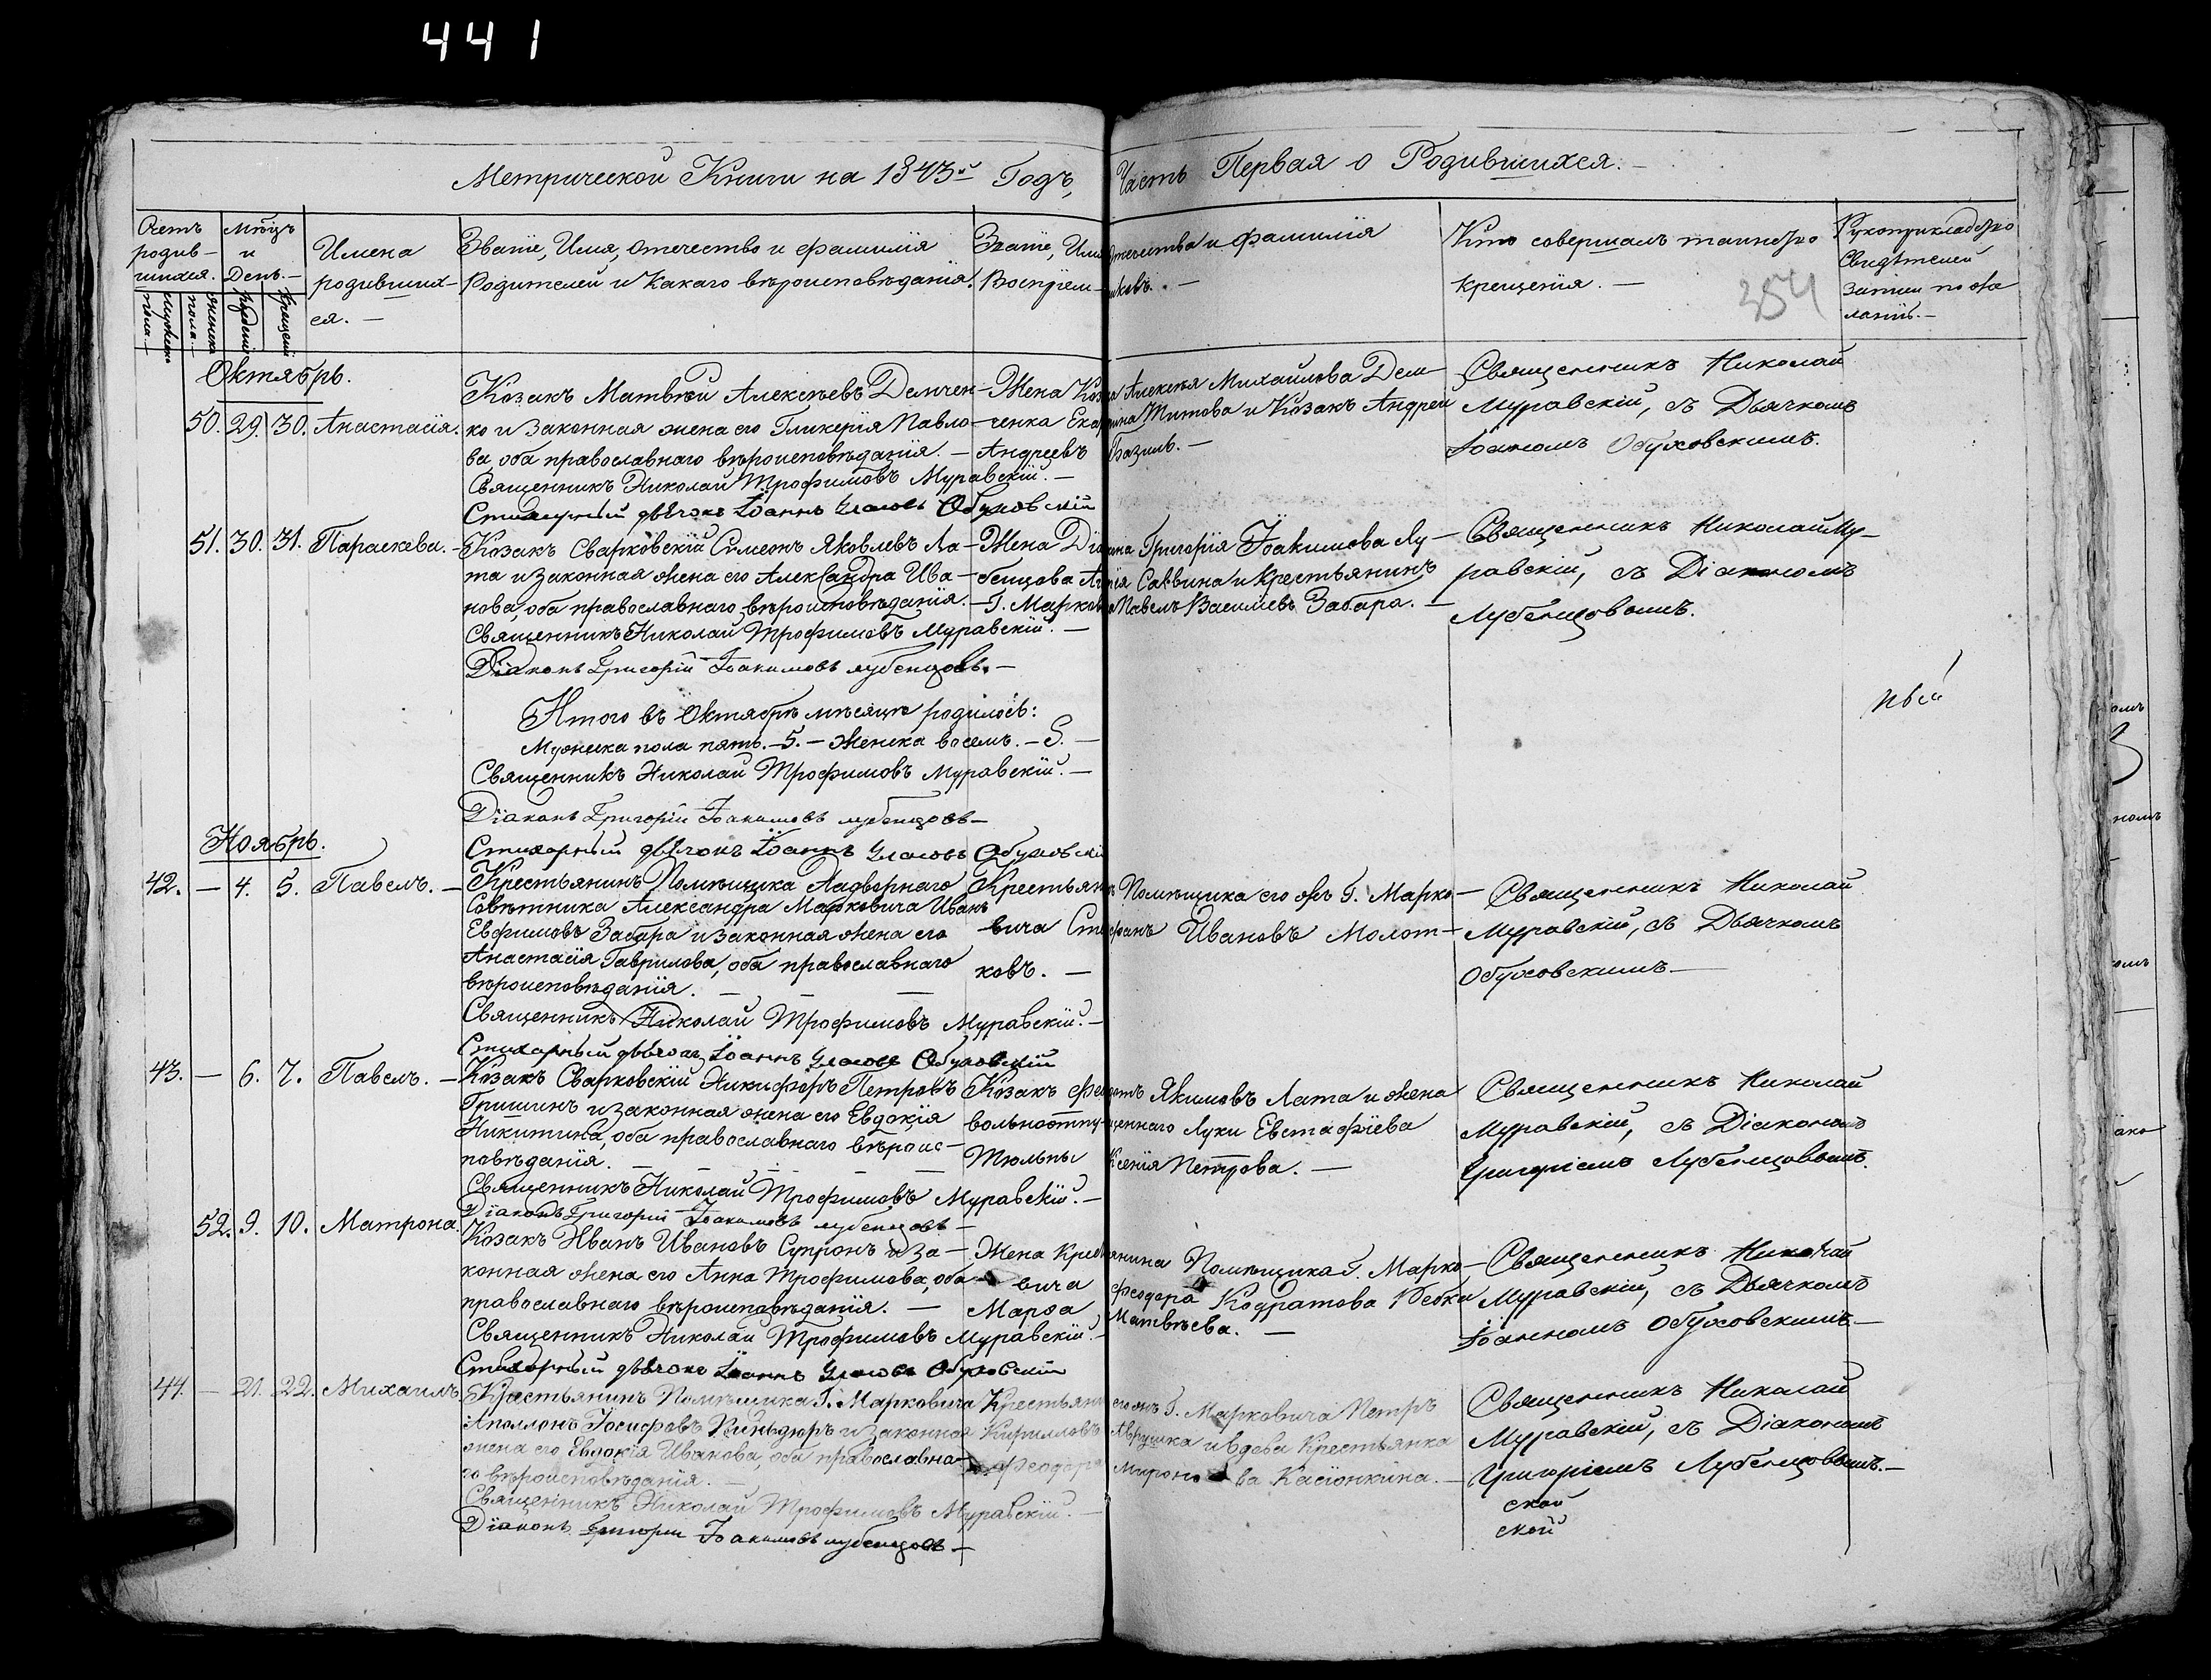 441
Метрической Книги на 1843й Годъ, Часть Первая о Родившихся.
354
Счетъ родив-шихся.
мужеска пола.
женска пола.
Мѣсцъ и День.
рожденія
крещенія
Имена родивших-ся.
Званіе, Имя, отечество и фамилія
Родителей и Какаго вѣроисповѣданія.
Званіе, Имя, отечества и фамилія
Воспріем-никовъ.
Кто совершалъ таинство
крещенія.
Рукоприкладство
Свидѣтелей
записи по же
ланію.
Октябрь.
50. 29. 30. Анастасія.
Козакъ Матвѣй Алексѣевъ Демчен-
ко и законная жена его Гликерія Павло-
ва, оба православнаго вѣроисповѣданія.
Жена Козака Алексѣя Михайлова Дем-
ченка Екатерина Титова и Козакъ Андрей
Андреевъ Базиль.
Священникъ Николай
Муравскій, съ Дьячкомъ
Іоанномъ Обуховскимъ.
Священникъ Николай Трофимовъ Муравскій.
Стихарный дьячокъ Іоаннъ Обуховскій
51. 30. 31. Параскева.
Козакъ Сварковскій Симеонъ Яковлевъ Ла-
та и законная жена его Александра Ива-
нова, оба православнаго вѣроисповѣданія.
Жена Діакона Григорія Іоакимова Лу-
бенцова Саввина и крестьянинъ
Г. Марковича Павелъ Василіевъ Забара.
Священникъ Николай Му-
равскій, съ Діакономъ
Лубенцовымъ.
Священникъ Николай Трофимовъ Муравскій.
Діаконъ Григорій Іоакимовъ лубенцовъ.
Итого въ Октябрѣ мѣсяцѣ родилось:
Мужеска пола пять. -5.- Женска восемь. -8.
Священникъ Николай Трофимовъ Муравскій.
Діаконъ Григорій Іоакимовъ лубенцовъ
Стихарный дьячокъ Іоаннъ Обуховскій
Ноябрь.
42. — 4. 5. Павелъ.
Крестьянинъ Помѣщика Надворнаго
Совѣтника Александра Марковича Иванъ
Евфимовъ Забара и законная жена его
Анастасія Гаврилова, оба православнаго
вѣроисповѣданія.
Крестьянинъ Помѣщика его жъ Г. Марко-
вича Стефанъ Ивановъ Молот-
ковъ.
Священникъ Николай
Муравскій, съ Дьячкомъ
Обуховскимъ
Священникъ Николай Трофимовъ Муравскій.
Стихарный дьячокъ Іоаннъ Обуховскій
43. — 6. 7. Павелъ.
Козакъ Сварковскій Никифоръ Петровъ
Гришинъ и законная жена его Евдокія
Никитина, оба православнаго вѣроис-
повѣданія.
Козакъ Якимовъ Лата и жена
вольноотпущеннаго Луки Евстафіева
Тюльпы Ксенія Петрова.
Священникъ Николай
Муравскій, съ Діакономъ
Григоріемъ Лубенцовымъ.
Священникъ Николай Трофимовъ Муравскій.
Діаконъ Григорій Іоакимовъ лубенцовъ
52. 9. 10. Матрона.
Козакъ Иванъ Ивановъ Супронъ и за-
конная жена его Анна Трофимова, оба
православнаго вѣроисповѣданія.
Жена Крестьянина Помѣщика Г. Марко-
вича Феодора Кодратова
Марѳа Матвѣева.
Священникъ Николай
Муравскій, съ Дьячкомъ
Іоанномъ Обуховскимъ
Священникъ Николай Трофимовъ Муравскій.
Стихарный дьячокъ Іоаннъ Обуховскій
44. — 21. 22. Михаилъ.
Крестьянинъ Помѣщика Г. Марковича
Аполлонъ Іосифовъ и законная
жена его Евдокія Иванова, оба православна-
го вѣроисповѣданія.
Крестьянинъ его жъ Г. Марковича Петръ
Кирилловъ и вдова Крестьянка
Феодора Миронова Касіонкина.
Священникъ Николай
Муравскій, съ Діакономъ
Григоріемъ Лубенцовымъ.
ской
ской
Священникъ Николай Трофимовъ Муравскій.
Діаконъ Григорій Іоакимовъ лубенцовъ